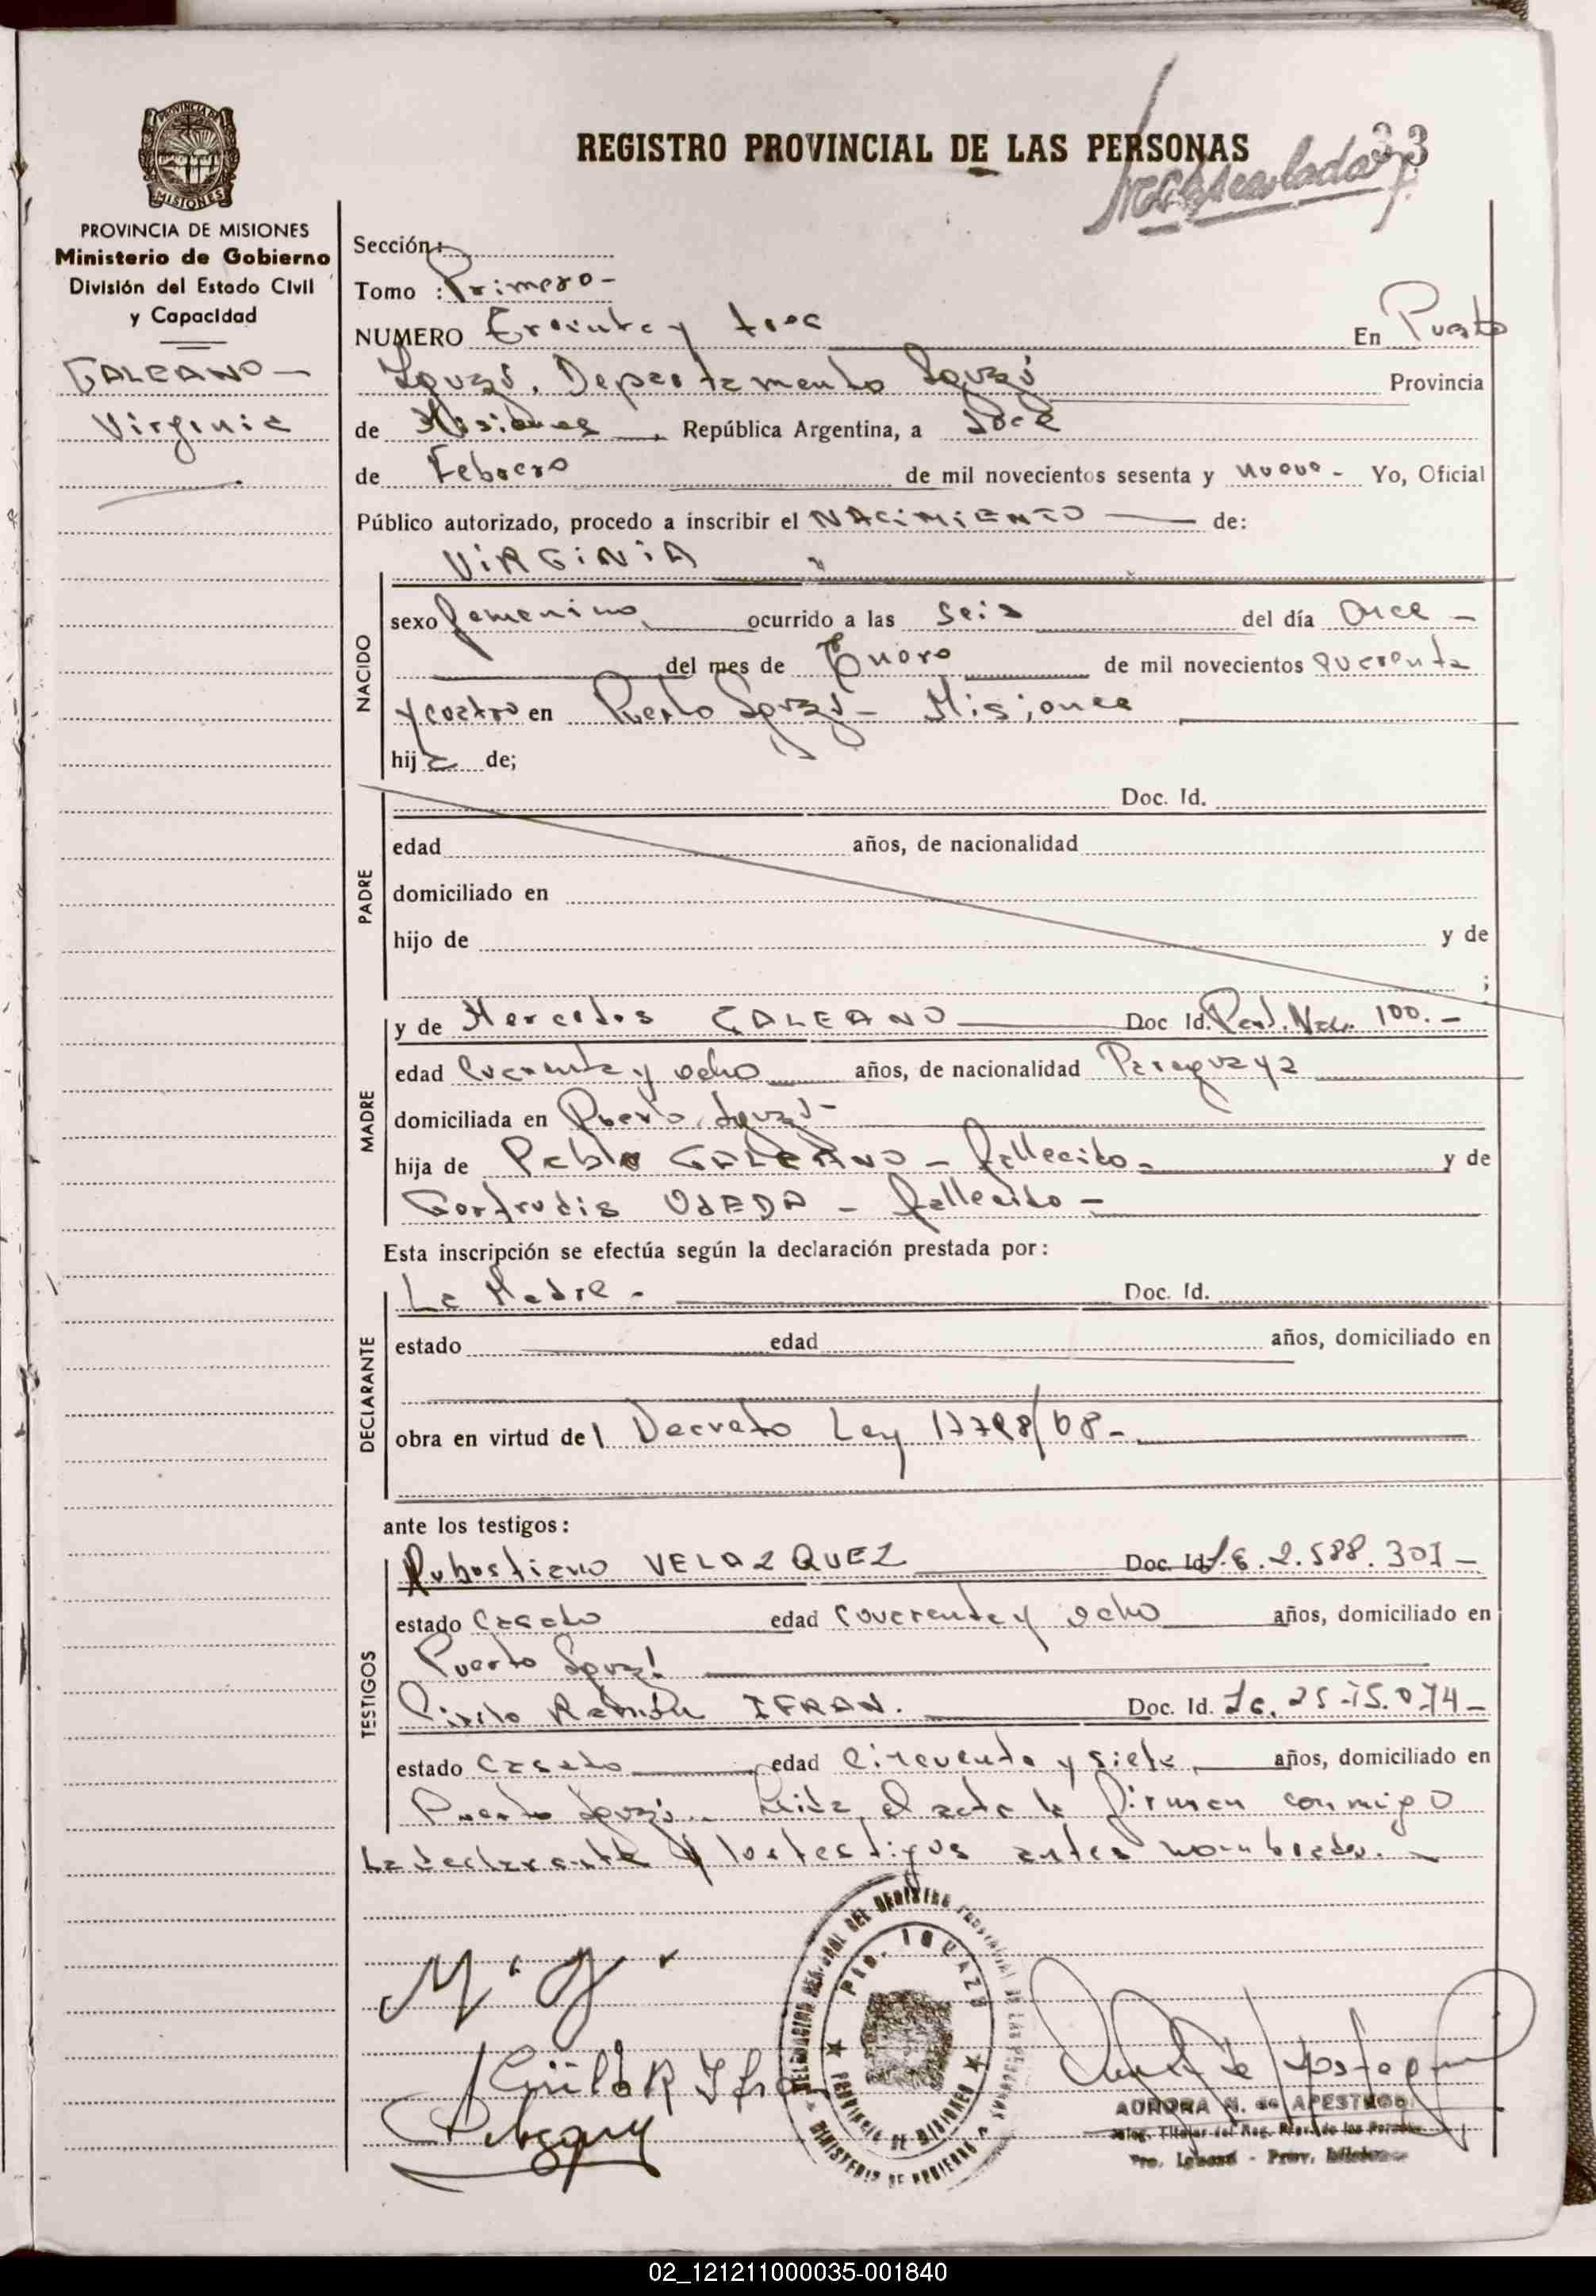 REGISTRO PROVINCIAL DE LAS PERSONAS
33
PROVINCIA DE MISIONES
Ministerio de Gobierno
División del Estado Civil
y Capacidad
GALEANO -
Virginia
Sección:
Tomo : Primero -
NUMERO Treinta y tres En Puerto
Iguazú, Departamento Iguazú Provincia
de Misiones, República Argentina, a Doce
de Febrero de mil novecientos sesenta y nueve - Yo, Oficial
Público autorizado, procedo a inscribir el NACIMIENTO de:
VIRGINIA
NACIDO
sexo femenino ocurrido a las seis del día Once -
del mes de Enero de mil novecientos cuarenta
y cuatro en Puerto Iguazú - Misiones
hija de;
PADRE
Doc. Id.
edad años, de nacionalidad
domiciliado en
hijo de y de
;
MADRE
y de Mercedes GALEANO Doc Id. 100. -
edad cuarenta y ocho años, de nacionalidad Paraguaya
domiciliada en Puerto Iguazú -
hija de Pablo GALEANO - fallecido - y de
Gertrudis OJEDA - fallecido -
Esta inscripción se efectúa según la declaración prestada por:
DECLARANTE
La Madre - Doc. Id.
estado edad años, domiciliado en
obra en virtud del Decreto Ley 17798/68 -
ante los testigos:
TESTIGOS
VELAZQUEZ Doc. Id. 2.588.301 -
estado Casado edad cuarenta y ocho años, domiciliado en
Puerto Iguazú
Cirilo Ramón IFRAN. Doc. Id.
estado Casado edad cincuenta y siete, años, domiciliado en
Puerto Iguazú. Leída el acta la firman conmigo
La declarante y los testigos antes nombrados. -
M. G.
Cirilo R Ifran
DELEGACION REGIONAL DEL REGISTRO PROVINCIAL DE LAS PERSONAS
MINISTERIO DE GOBIERNO
Pto. IGUAZU
PROVINCIA DE MISIONES
AURORA N. de APESTEGUI
Deleg. Titular del Reg. Prov. de las Personas
Pto. Iguazú - Prov. Misiones
02_121211000035-001840